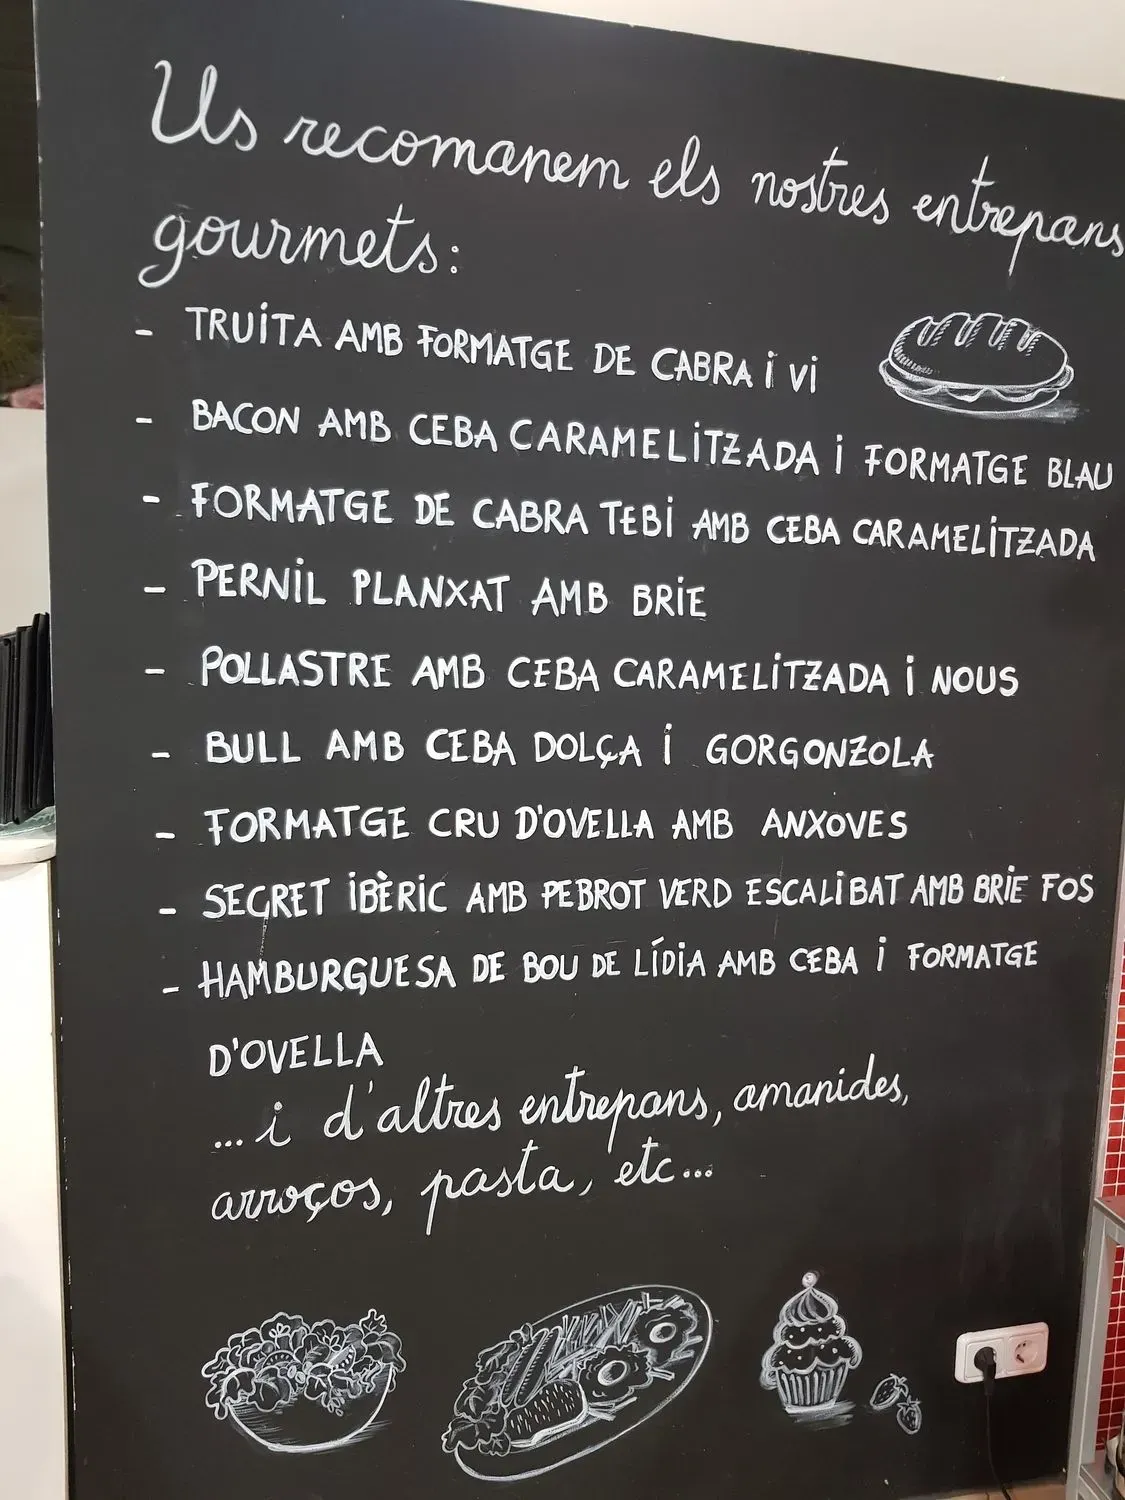 Us recomanem els nostres entrepans
gourmets:
- TRUITA AMB FORMATGE DE CABRA i Vi
- BACON AMB CEBA CARAMELITZADA i FORMATGE BLAU
- FORMATGE DE CABRA TEBI AMB CEBA CARAMELITZADA
- PERNIL PLANXAT AMB BRIE
- POLLASTRE AMB CEBA CARAMELITZADA i NOUS
- BULL AMB CEBA DOLÇA i GORGONZOLA
- FORMATGE CRU D'OVELLA AMB ANXOVES
- SEGRET IBÈRIC AMB PEBROT VERD ESCALIBAT AMB BRIE FOS
- HAMBURGUESA DE BOU DE LÍDIA AMB CEBA i FORMATGE
D'OVELLA
... i d'altres entrepans, amanides,
arroços, pasta, etc...